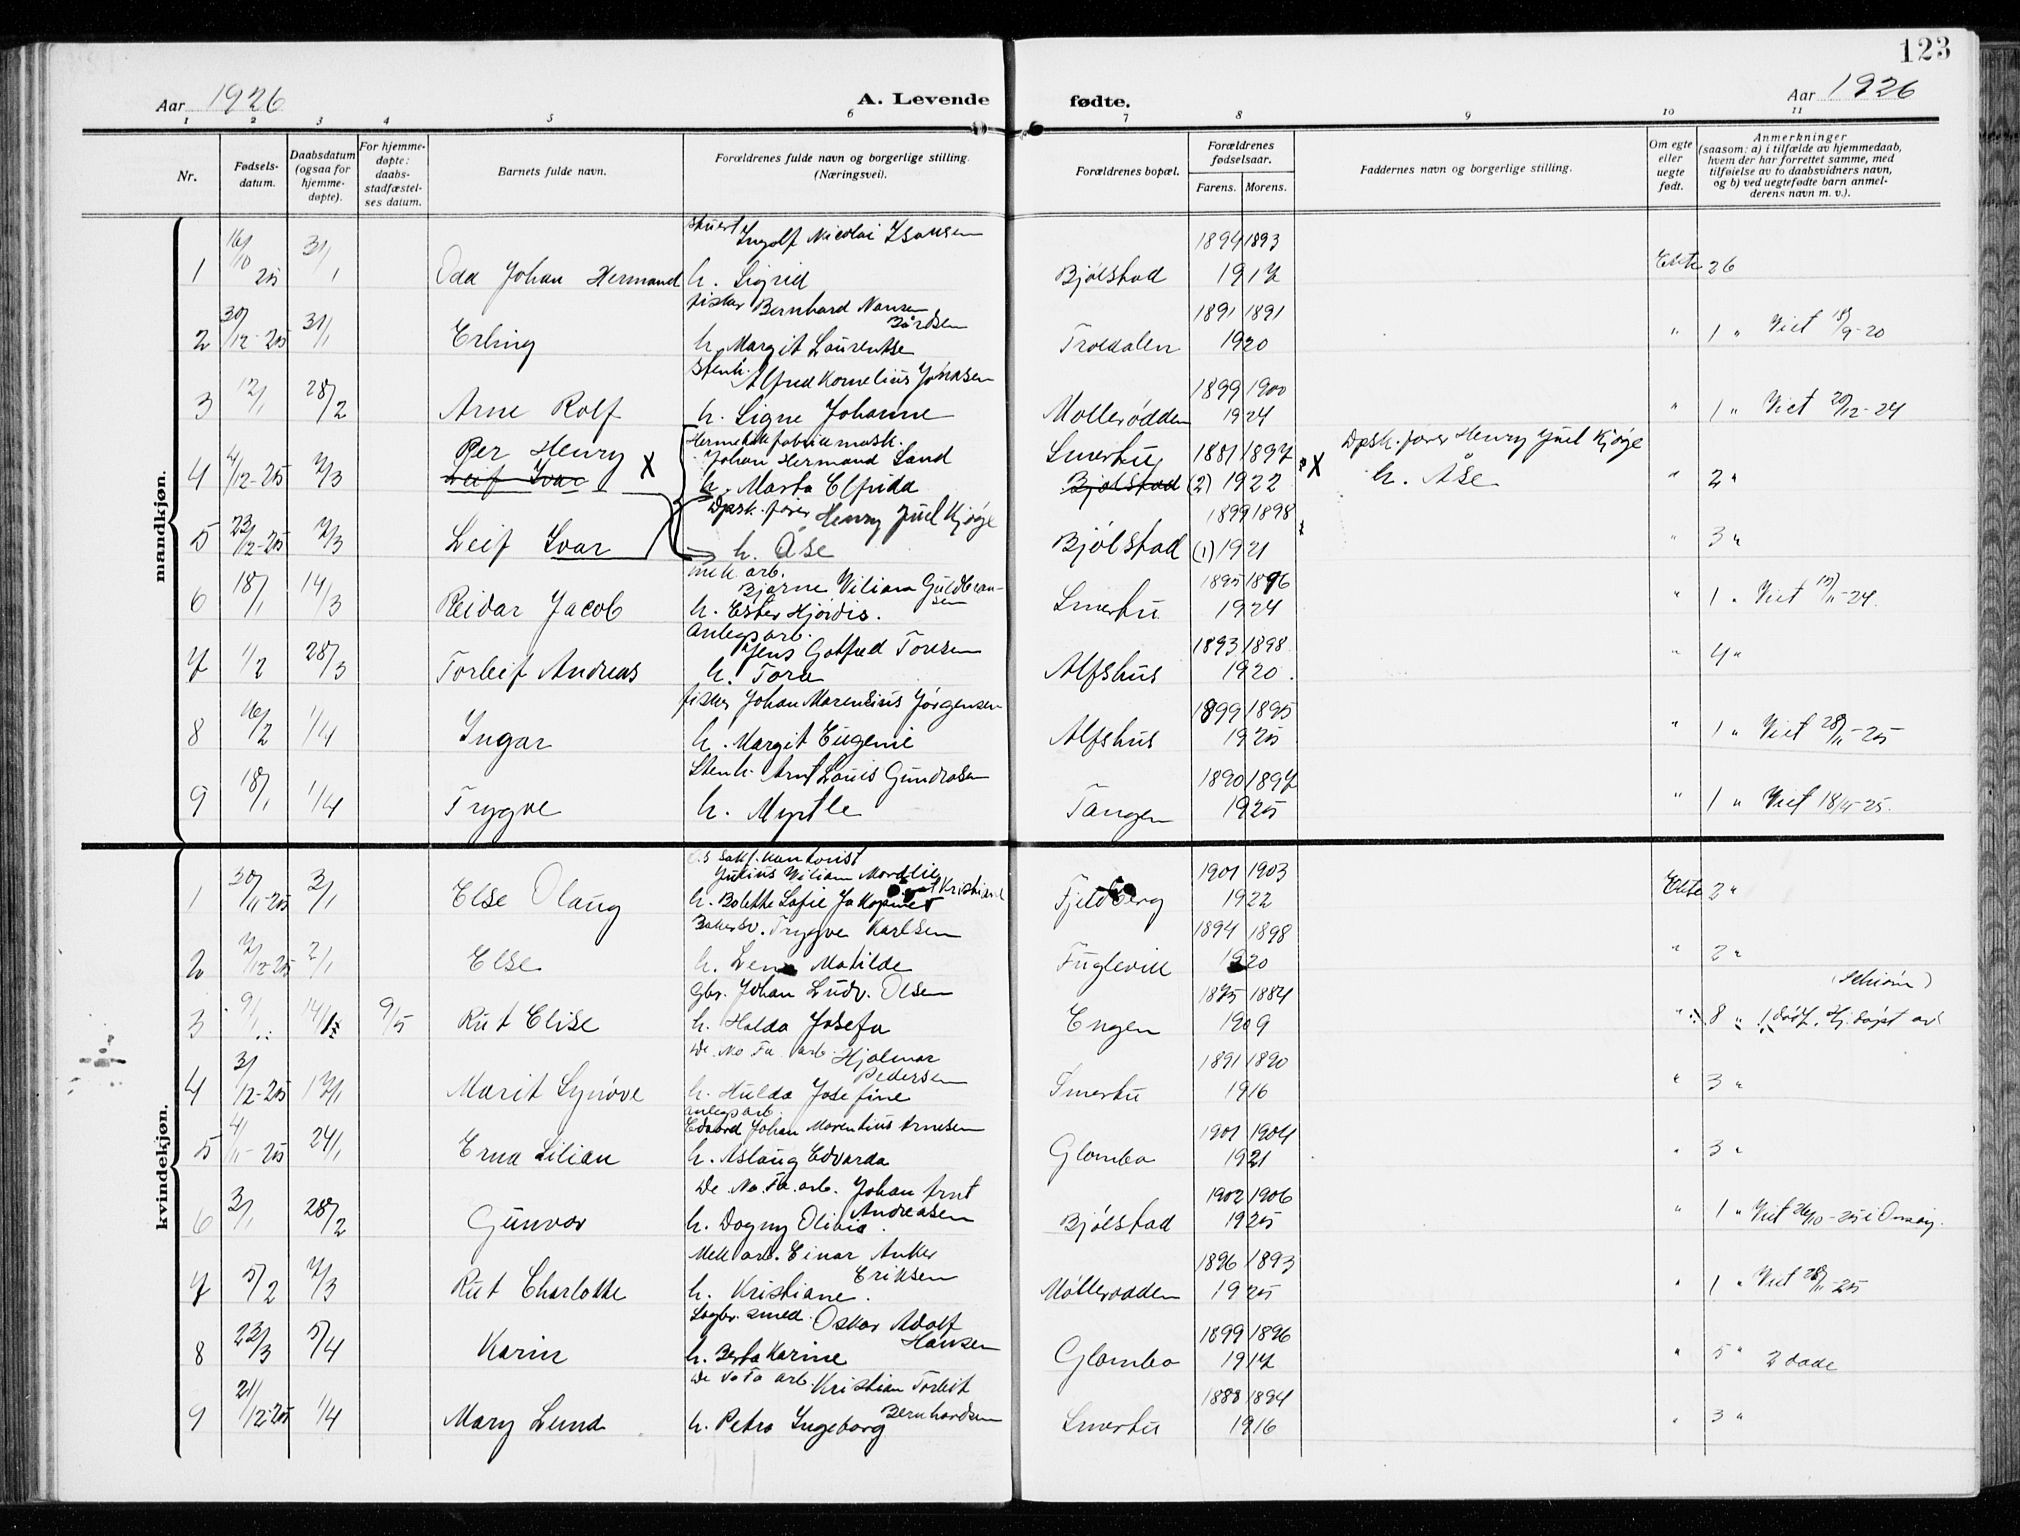 123
Aar 1926
A. Levende fødte.
Aar 1926
1 2 3 4 5 6 7 8 9 10 11
Nr.
Fødsels-
datum.
Daabsdatum
(ogsaa for
hjemme-
døpte).
For hjemme-
døpte:
daabs-
stadfæstel-
ses datum.
Barnets fulde navn.
Forældrenes fulde navn og borgerlige stilling.
(Næringsvei).
Forældrenes bopæl.
Forældrenes
fødselsaar.
Farens. Morens.
Faddernes navn og borgerlige stilling.
Om egte
eller
uegte
født.
Anmerkninger
(saasom: a) i tilfælde av hjemmedaab,
hvem der har forrettet samme, med
tilføielse av to daabsvidners navn,
og b) ved uegtefødte barn anmel-
derens navn m. v.).
mandkjøn.
Ingolf Nicolai 1894 1893
1 16/10 25 31/1 Odd Johan Hermand h. Sigrid Bjølstad 1917 Ekte 26
fisker Bernhard Nansen 1891 1891
Bårdsen
2 30/12-25 31/1 Erling h. Margit Laurentse 1920 " 1 " Viet 18/9-20
Stenh. Alfred Kornelius 1899 1900
3 12/1 28/2 Arne Rolf h. Signe Johanne Møllerodden 1924 " 1 " Viet 20/12-24
Hermetikfabrikmask.
Per Henry Johan Hermand Sand Smertu 1881 1897 Dpsk. fører Henry Juel Kjøge
4 4/12-25 7/3 Leif Ivar X h. Marta Elfrida Bjølstad (2) 1922 X h. Åse " 2 "
Dpsk. fører Henry Juel Kjøge 1899 1898
5 23/12-25 7/3 Leif Ivar h. Åse Bjølstad (1) 1921 " 3 "
mek. arb.
Bjarne Viliam Guldbran- 1895 1896
sen
6 18/1 14/3 Reidar Jacob h. Ester Hjørdis. Smertu 1924 " 1 " Viet 15/11-24.
Anlegsarb.
Jens Gotfred Toresen 1893 1898
7 1/2 28/3 Torleif Andreas h. Tora Alfshus 1920. " 4 "
fisker Johan Marensius Jørgensen 1899 1895
8 16/2 1/4 Ingar h. Margit Eugenie Alfshus 1925 " 1 " Viet 28/11-25
Stenh. Arnt Louis 1890 1897
9 18/1 1/4 Trygve h. Myrtle Tangen 1925 " 1 " Viet 18/4-25.
kvindekjøn.
Julius Viliam Nordlie 1901 1903
1 30/11-25 3/1 Else Olaug h. Bolette Sofie Fjeldberg 1922 Ekte 2 "
Bakersv. Trygve Karlsen 1894 1898
2 7/12-25 2/1 Else h. Lena Matilde Fuglevik 1920 " 2 "
Gbr. Johan Ludv. Olsen 1875 1884 (Schiøm)
3 9/1 14/1 9/5 Rut Elise h. Halda Josefa Engen 1909 " 8 " 1 dødf. Hj. døpt av
De No Fa arb. Hjalmar 1891 1890
Pedersen
4 3/12-25 17/1 Marit Synøve h. Hulda Josefine Smertu 1916 " 3 "
Anlegsarb.
Edvard Johan Marentius Arnesen 1901 1904
5 4/11-25 24/1 Erna Lilian h. Aslaug Edvarda Glombo 1921 " 3 "
De No. Fa. arb. Johan Arnt 1902 1906
Andreasen
6 3/1 28/2 Gunvor h. Dagny Olivia Bjølstad 1925 " 1 " Viet 26/10-25 i Onsøy.
Mek arb. Einar Anker 1896 1893
Eriksen
7 5/2 7/3 Rut Charlotte h. Kristiane. Møllerodden 1925 " 1 " Viet 28/11-25
Sagbr. smed. Oskar Adolf 1899 1896
Hansen
8 23/3 5/4 Karin h. Berta Karine Glombo 1917 " 5 " 2 døde
De No Fa arb. Kristian Torleif 1888 1894
Bernhardsen
9 21/12-25 1/4 Mary Lund h. Petra Ingeborg Smertu 1916 " 3 "